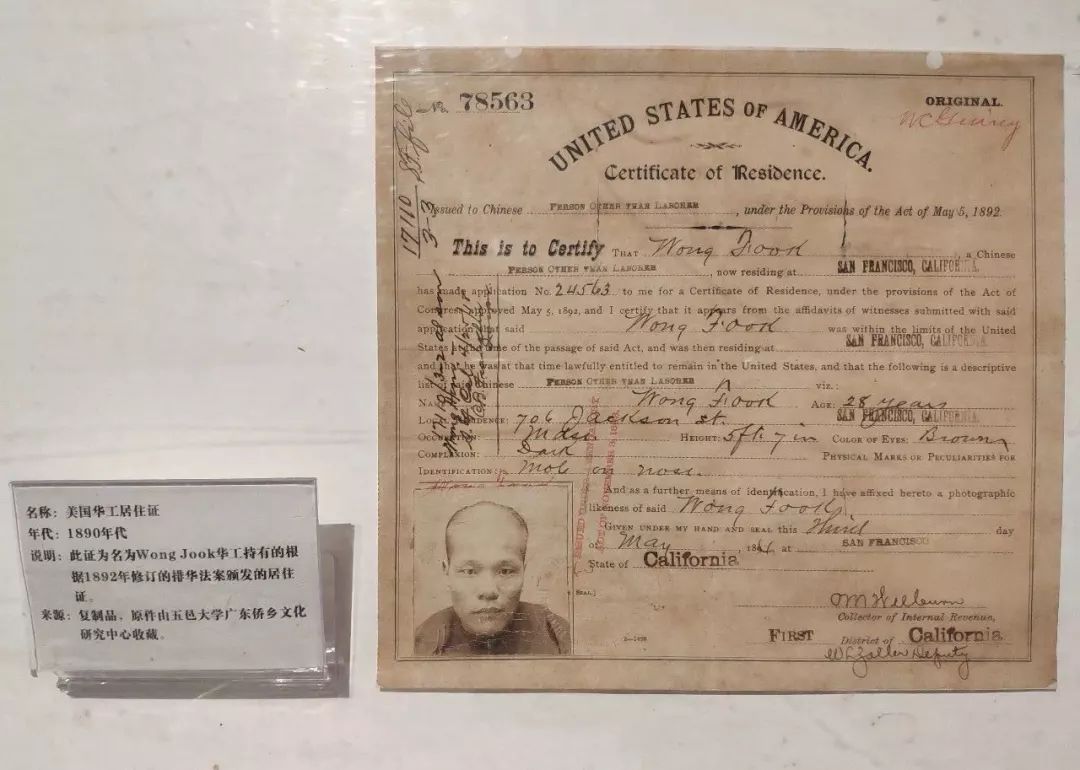 名称：美国华工居住证
年代：1890年代
说明：此证为名为Wong Jook华工持有的根
据1892年修订的排华法案颁发的居住
证。
来源：复制品，原件由五邑大学广东侨乡文化
研究中心收藏。
No. 78563
ORIGINAL.
UNITED STATES OF AMERICA.
Certificate of Residence.
Issued to Chinese PERSON OTHER THAN LABORER, under the Provisions of the Act of May 5, 1892.
This is to Certify THAT Wong Fook, a Chinese
PERSON OTHER THAN LABORER, now residing at SAN FRANCISCO, CALIFORNIA.
has made application No. 24563 to me for a Certificate of Residence, under the provisions of the Act of
Congress approved May 5, 1892, and I certify that it appears from the affidavits of witnesses submitted with said
application that said Wong Fook was within the limits of the United
States at the time of the passage of said Act, and was then residing at SAN FRANCISCO, CALIFORNIA.
and that he was at that time lawfully entitled to remain in the United States, and that the following is a descriptive
list of said Chinese PERSON OTHER THAN LABORER viz.:
NAME: Wong Fook AGE: 28 years
LOCAL RESIDENCE: 706 Jackson st. SAN FRANCISCO, CALIFORNIA.
OCCUPATION: Mdse HEIGHT: 5 ft. 7 in COLOR OF EYES: Brown
COMPLEXION: Dark PHYSICAL MARKS OR PECULIARITIES FOR
IDENTIFICATION: Mole on nose.
And as a further means of identification, I have affixed hereto a photographic
likeness of said Wong Fook.
GIVEN UNDER MY HAND AND SEAL this Third day
of May, at SAN FRANCISCO
State of California
[SEAL.]
Collector of Internal Revenue,
FIRST District of California
Deputy
17110
3-3